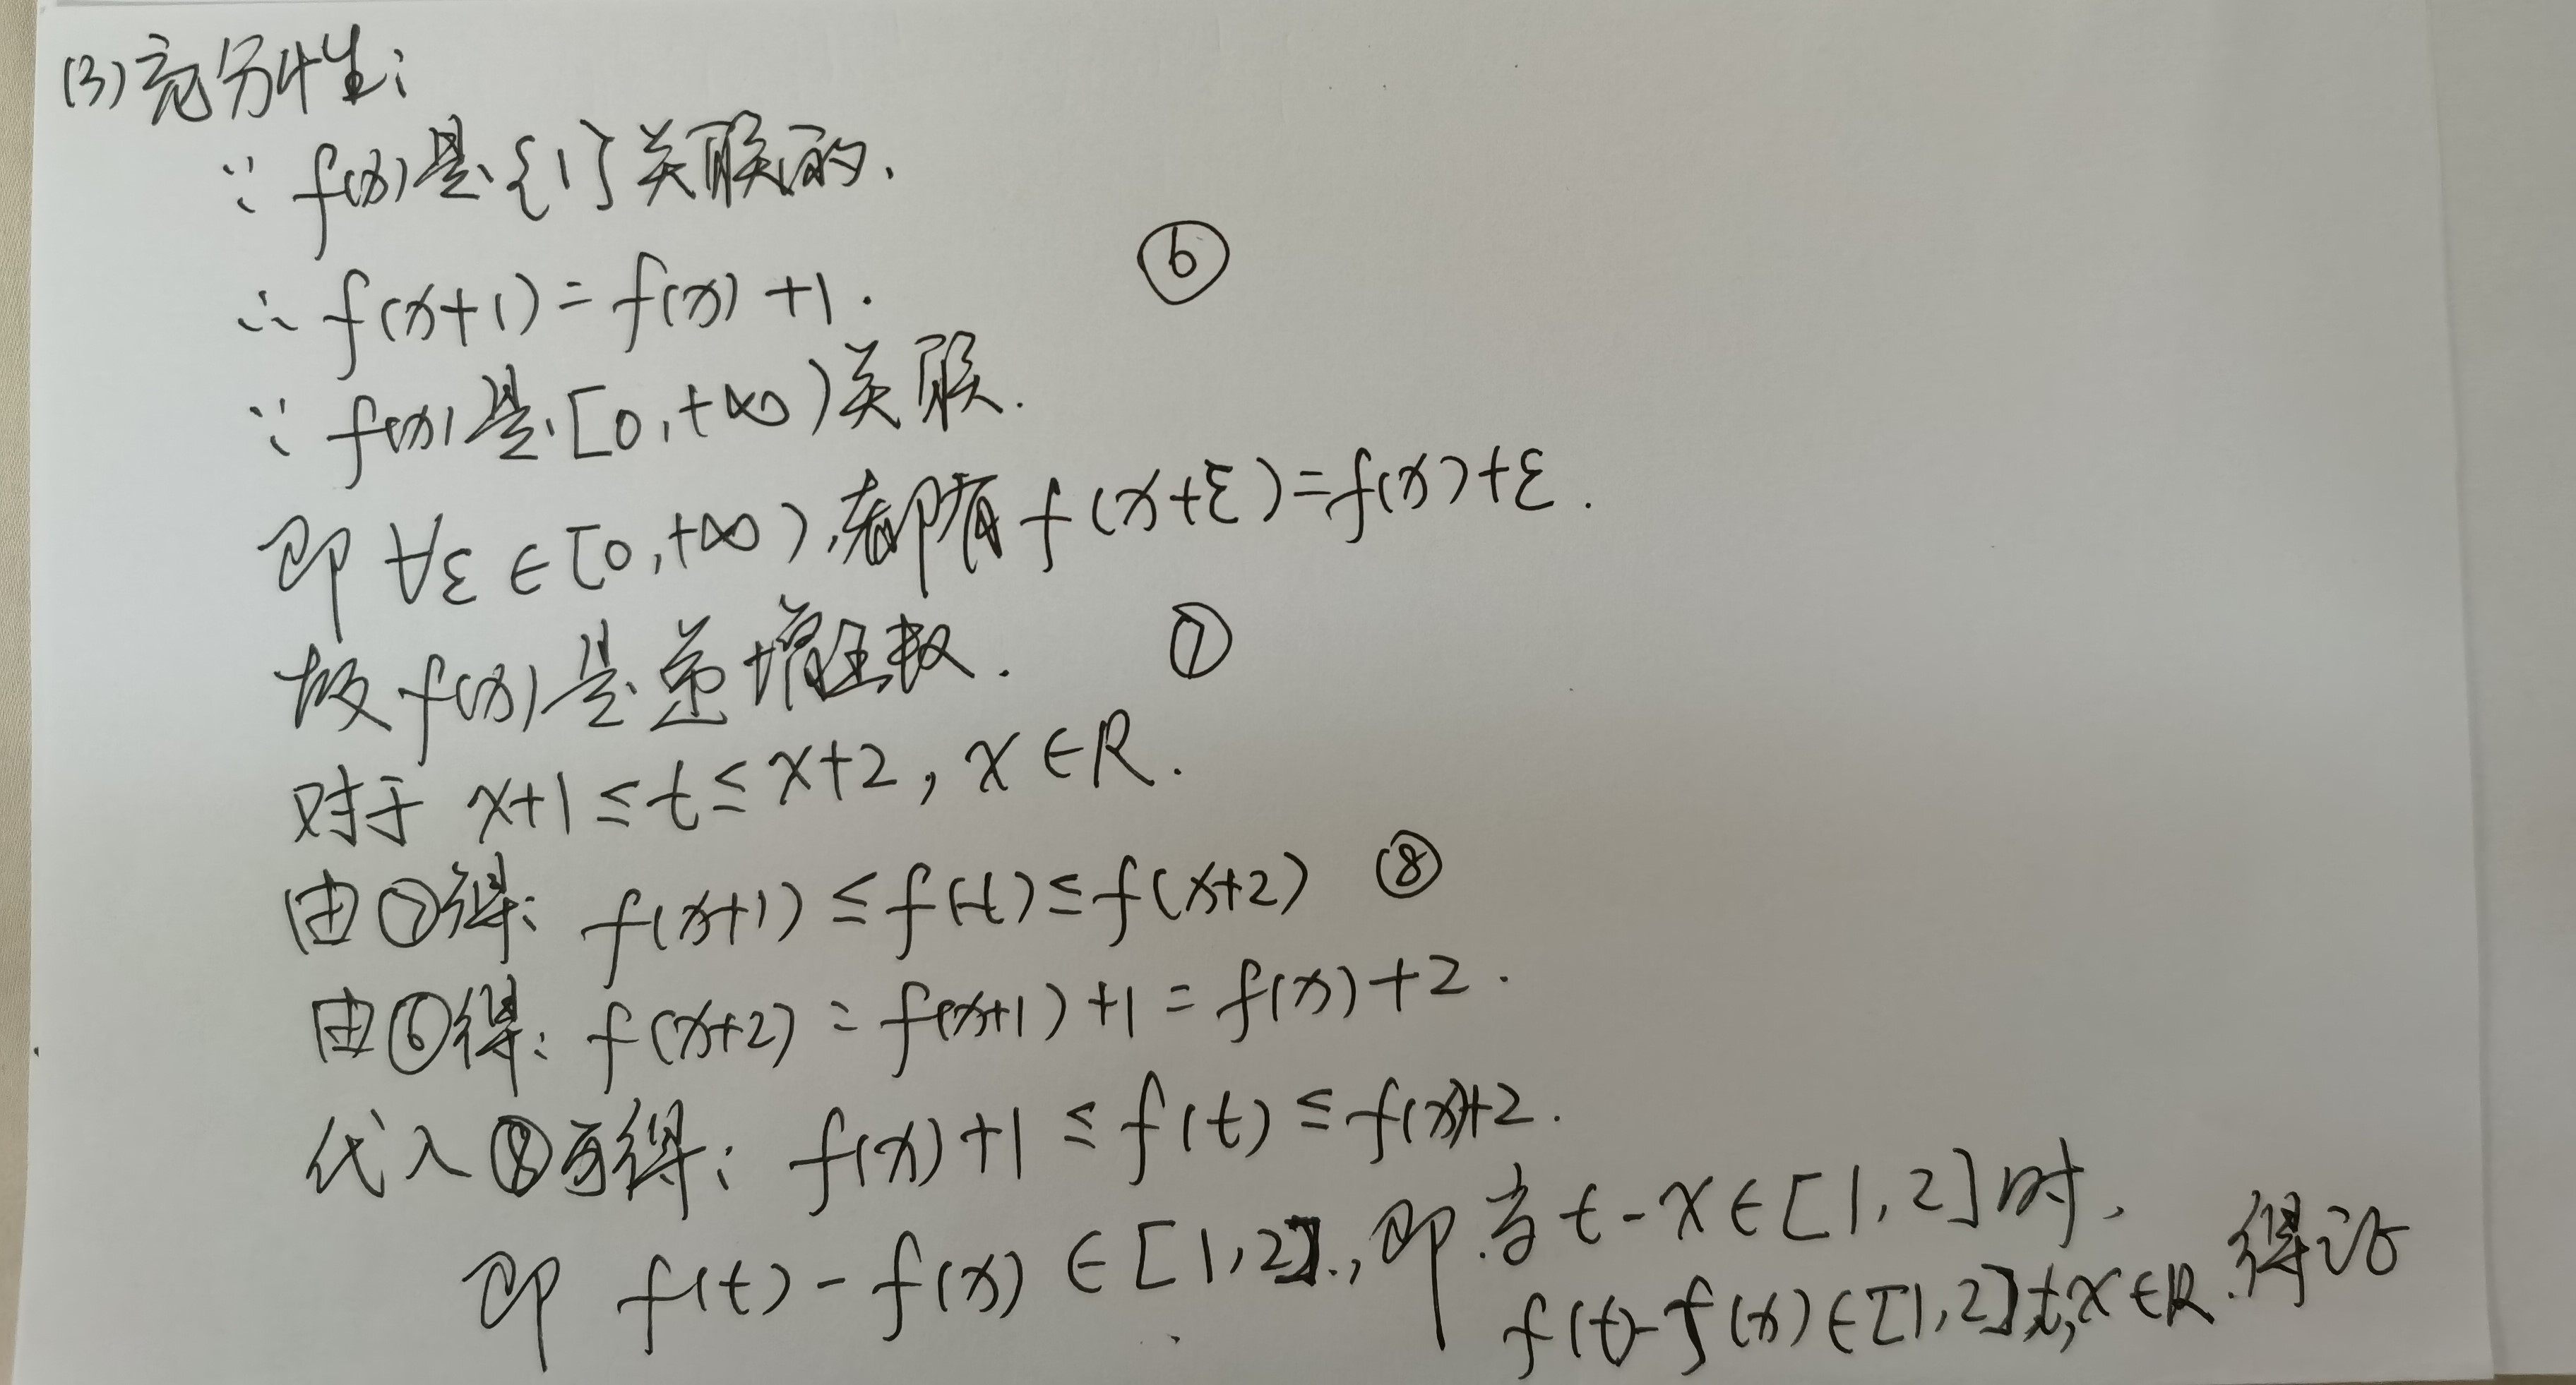 (3)充分性:
∵ f(x)是{1}关联的.
∴ f(x+1)=f(x)+1. ⑥
∵ f(x)是[0,+∞)关联.
即 ∀ε∈[0,+∞),都有f(x+ε)=f(x)+ε.
故f(x)是递增函数. ⑦
对于 x+1≤t≤x+2, x∈R.
由⑦得: f(x+1)≤f(t)≤f(x+2) ⑧
由⑥得: f(x+2)=f(x+1)+1=f(x)+2.
代入⑧可得: f(x)+1≤f(t)≤f(x)+2.
即 f(t)-f(x)∈[1,2]., 即当t-x∈[1,2]时,
f(t)-f(x)∈[1,2],t,x∈R.得证